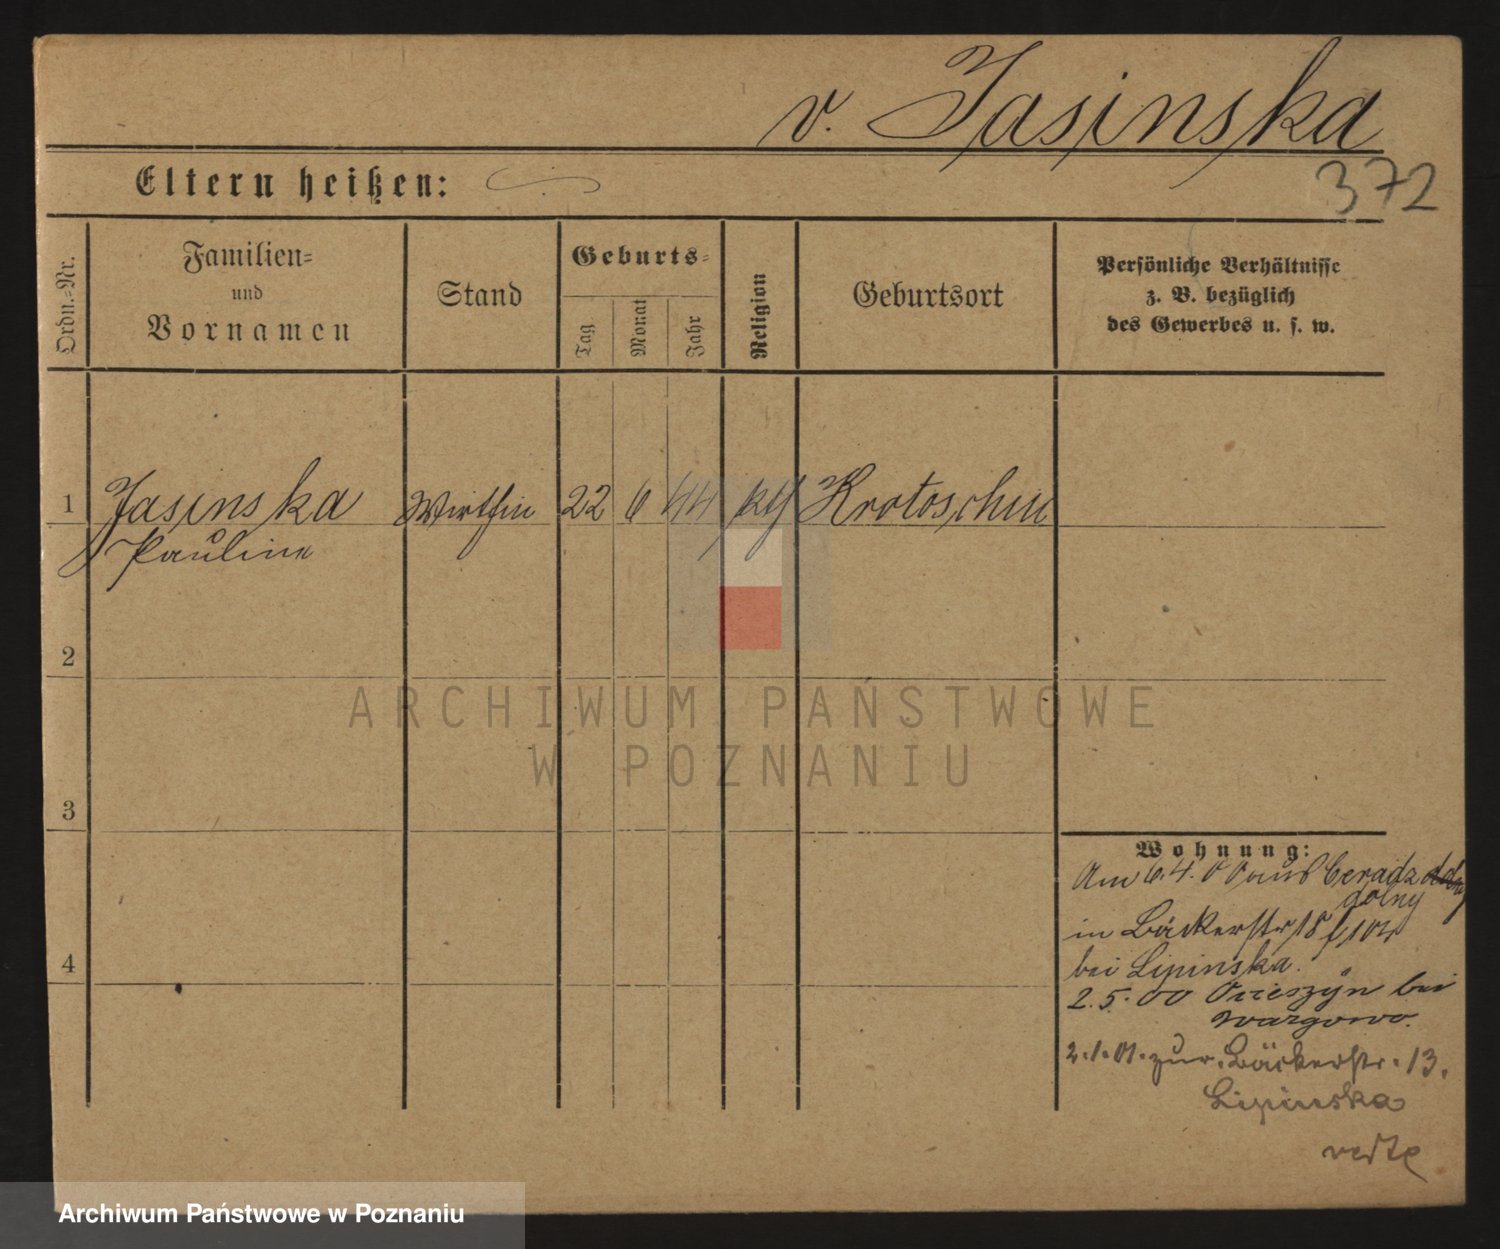 v. Jasinska
372
Eltern heißen:
Ordn.-Nr.
Familien-
und
Vornamen
Stand
Geburts-
Tag
Monat
Jahr
Religion
Geburtsort
Persönliche Verhältnisse
z. B. bezüglich
des Gewerbes u. s. w.
1
Jasinska
Pauline
Wirthin
22
6
44
Krotoschin
2
3
4
Wohnung:
Am 6.4.00 aus Ceradz
dolny
in Bäckerstr
bei Lipinska.
2.5.00 bei
Wargowo.
2.1.01. zur. Bäckerstr. 13.
Lipinska
verte
ARCHIWUM PAŃSTWOWE
W POZNANIU
Archiwum Państwowe w Poznaniu